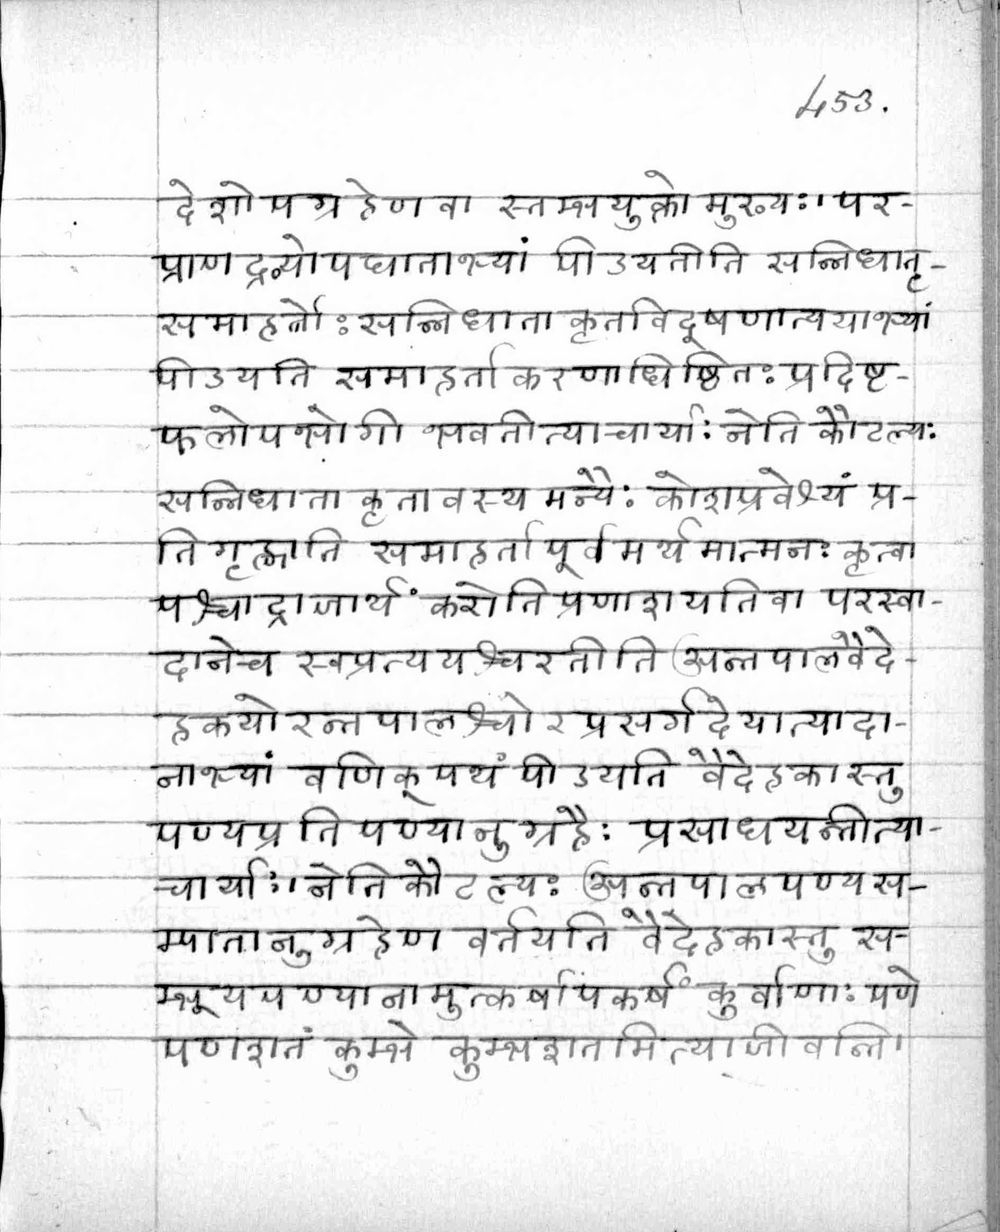 453.
देशोपग्रहेण वा स्तम्भयुक्तो मुख्यः। पर-
प्राणद्रव्योपघाताभ्यां पीडयतीति सन्निधातृ-
समाहर्तोः सन्निधाता कृतविदूषणात्ययाभ्यां
पीडयति समाहर्ता करणाधिष्ठितः प्रदिष्ट-
फलोपभोगी भवतीत्याचार्याः नेति कौटल्यः
सन्निधाता कृतावस्थ मन्यैः कोशप्रवेश्यं प्र-
तिगृह्णाति समाहर्ता पूर्वमर्थमात्मनः कृत्वा
पश्चाद्राजार्थं करोति प्रणाशयति वा परस्वा-
दानेच स्वप्रत्ययश्चरतीति अन्तपालवैदे-
हकयोरन्तपालश्चोरप्रसर्गदेयात्यादा-
नाभ्यां वणिक्पथं पीडयति वैदेहकास्तु
पण्यप्रतिपण्यानुग्रहैः प्रसाधयन्तीत्या-
चार्याः। नेति कौटल्यः अन्तपाल पण्यस-
म्पातानुग्रहेण वर्तयति वैदेहकास्तु स-
म्भूय पण्यानामुत्कर्षापकर्षं कुर्वाणाः पणे
पणशतं कुम्भे कुम्भशतमित्याजीवन्ति